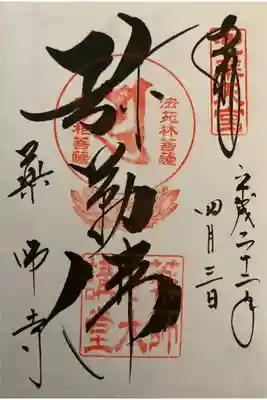 奉拝
平成二十二年
四月三日
弥勒佛
法苑林菩薩
相菩薩
薬師寺